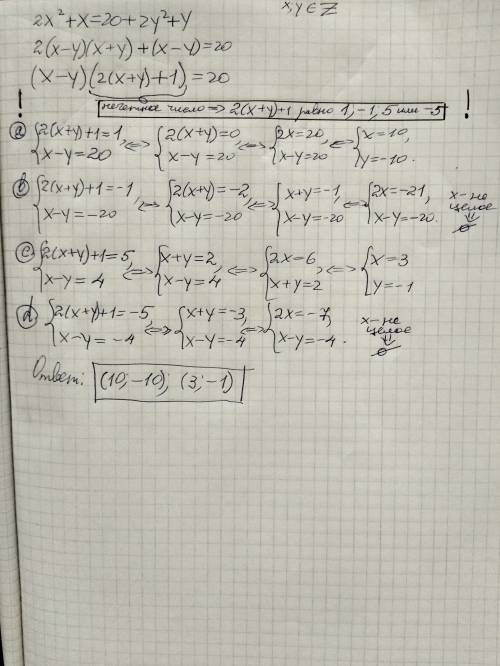 x,y ∈ Z
2x²+x=20+2y²+y
2(x-y)(x+y)+(x-y)=20
(x-y)(2(x+y)+1)=20
! нечетное число ⇒ 2(x+y)+1 равно 1,-1, 5 или -5 !
a) {2(x+y)+1=1, x-y=20 ⇔ {2(x+y)=0, x-y=20 ⇔ {2x=20, x-y=20 ⇔ {x=10, y=-10.
b) {2(x+y)+1=-1, x-y=-20 ⇔ {2(x+y)=-2, x-y=-20 ⇔ {x+y=-1, x-y=-20 ⇔ {2x=-21, x-y=-20. x-не целое ⇓ ∅
c) {2(x+y)+1=5, x-y=4 ⇔ {x+y=2, x-y=4 ⇔ {2x=6, x+y=2 ⇔ {x=3 y=-1
d) {2(x+y)+1=-5, x-y=-4 ⇔ {x+y=-3, x-y=-4 ⇔ {2x=-7, x-y=-4. x-не целое ⇓ ∅
Ответ: (10;-10); (3;-1)